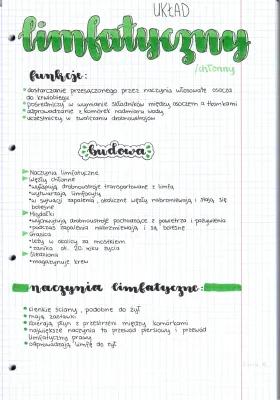 UKŁAD
limfatyczny
/chłonny
funkcje:
• dostarczanie przesączonego przez naczynia włosowate osocza
do krwiobiegu
• pośredniczy w wymianie składników między osoczem a tkankami
• odprowadzanie z komórek nadmiaru wody
• uczestniczy w zwalczaniu drobnoustrojów
budowa
Naczynia limfatyczne
Węzły chłonne
• wyłapują drobnoustroje transportowane z limfą
• wytwarzają limfocyty
• w sytuacji zapalenia, okoliczne węzły nabrzmiewają i stają się
bolesne
Migdałki
• wychwytują drobnoustroje pochodzące z powietrza i pożywienia
• podczas zapalenia nabrzmiewają i są bolesne
Grasica
• leży w okolicy za mostkiem
• zanika ok. 20 roku życia
Śledziona
• magazynuje krew
naczynia limfatyczne:
• cienkie ściany, podobne do żył
• mają zastawki
• zbierają płyn z przestrzeni między komórkami
• największe naczynia to przewód piersiowy i przewód
limfatyczny prawy
• odprowadzają limfę do żył